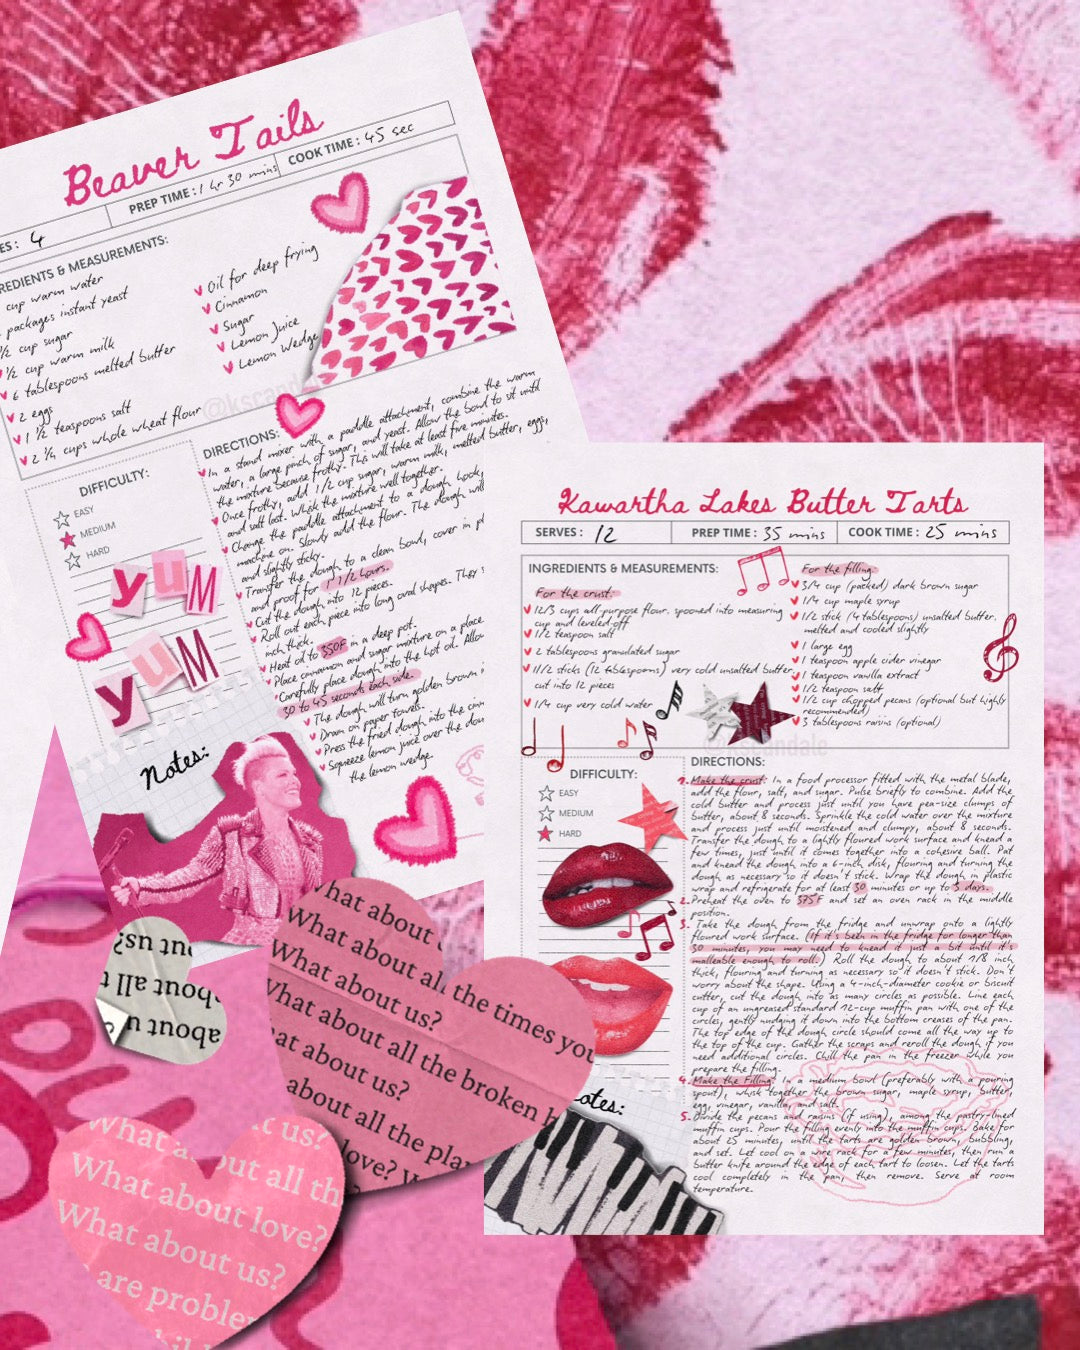 Beaver Tails
ES: 4
PREP TIME: 1 hr 30 mins
COOK TIME: 45 sec
REDIENTS & MEASUREMENTS:
cup warm water
packages instant yeast
1/2 cup sugar
1/2 cup warm milk
6 tablespoons melted butter
2 eggs
1 1/2 teaspoons salt
2 1/4 cups whole wheat flour
Oil for deep frying
Cinnamon
Sugar
Lemon Juice
Lemon Wedge
@kscandale
DIFFICULTY:
EASY
MEDIUM
HARD
YUM
YUM
Notes:
DIRECTIONS:
In a stand mixer with a paddle attachment, combine the warm
water, a large pinch of sugar, and yeast. Allow the bowl to sit until
the mixture because frothy. This will take at least five minutes.
Once frothy, add 1/2 cup sugar, warm milk, melted butter, eggs,
and salt last. Whisk the mixture well together.
Change the paddle attachment to a dough hook,
machine on. Slowly add the flour. The dough will
and slightly sticky.
Transfer the dough to a clean bowl, cover in pl
and proof for 1 1/2 hours.
Cut the dough into 12 pieces.
Roll out each piece into long oval shapes. They s
inch thick.
Heat oil to 350F in a deep pot.
Place cinnamon and sugar mixture on a place
Carefully place dough into the hot oil. Allo
30 to 45 seconds each side.
The dough will turn golden brown
Drain on paper towels.
Press the fried dough into the cin
Squeeze lemon juice over the dou
the lemon wedge.
Kawartha Lakes Butter Tarts
SERVES: 12
PREP TIME: 35 mins
COOK TIME: 25 mins
INGREDIENTS & MEASUREMENTS:
For the crust:
12/3 cups all-purpose flour, spooned into measuring
cup and leveled-off
1/2 teaspoon salt
2 tablespoons granulated sugar
11/2 sticks (12 tablespoons) very cold unsalted butter,
cut into 12 pieces
1/4 cup very cold water
For the filling:
3/4 cup (packed) dark brown sugar
1/4 cup maple syrup
1/2 stick (4 tablespoons) unsalted butter,
melted and cooled slightly
1 large egg
1 teaspoon apple cider vinegar
1 teaspoon vanilla extract
1/2 teaspoon salt
1/2 cup chopped pecans (optional but highly
recommended)
3 tablespoons raisins (optional)
@kscandale
DIFFICULTY:
EASY
MEDIUM
HARD
otes:
DIRECTIONS:
1. Make the crust: In a food processor fitted with the metal blade,
add the flour, salt, and sugar. Pulse briefly to combine. Add the
cold butter and process just until you have pea-size clumps of
butter, about 8 seconds. Sprinkle the cold water over the mixture
and process just until moistened and clumpy, about 8 seconds.
Transfer the dough to a lightly floured work surface and knead a
few times, just until it comes together into a cohesive ball. Pat
and knead the dough into a 6-inch disk, flouring and turning the
dough as necessary so it doesn't stick. Wrap the dough in plastic
wrap and refrigerate for at least 30 minutes or up to 3 days.
2. Preheat the oven to 375F and set an oven rack in the middle
position.
3. Take the dough from the fridge and unwrap onto a lightly
floured work surface. (If it's been in the fridge for longer than
30 minutes, you may need to knead it just a bit until it's
malleable enough to roll.) Roll the dough to about 1/8 inch
thick, flouring and turning as necessary so it doesn't stick. Don't
worry about the shape. Using a 4-inch-diameter cookie or biscuit
cutter, cut the dough into as many circles as possible. Line each
cup of an ungreased standard 12-cup muffin pan with one of the
circles, gently nudging it down into the bottom creases of the pan.
The top edge of the dough circle should come all the way up to
the top of the cup. Gather the scraps and reroll the dough if you
need additional circles. Chill the pan in the freezer while you
prepare the filling.
4. Make the Filling: In a medium bowl (preferably with a pouring
spout), whisk together the brown sugar, maple syrup, butter,
egg, vinegar, vanilla, and salt.
5. Divide the pecans and raisins (if using), among the pastry-lined
muffin cups. Pour the filling evenly into the muffin cups. Bake for
about 25 minutes, until the tarts are golden brown, bubbling,
and set. Let cool on a wire rack for a few minutes, then run a
butter knife around the edge of each tart to loosen. Let the tarts
cool completely in the pan, then remove. Serve at room
temperature.
out us?
bout all t
about u
hat about
What about all the times you
What about us?
What about all the broken h
hat about us?
about all the pla
love? W
What about us?
What about all th
What about love?
What about us?
are proble